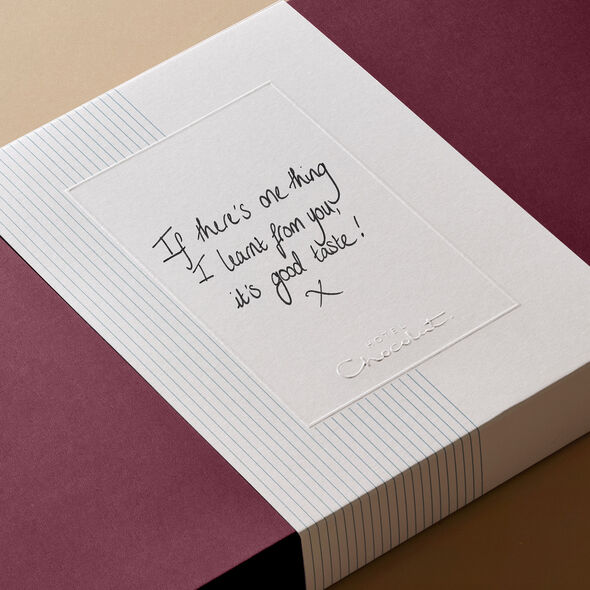 If there's one thing
I learnt from you,
it's good taste!
x
HOTEL
Chocolat.